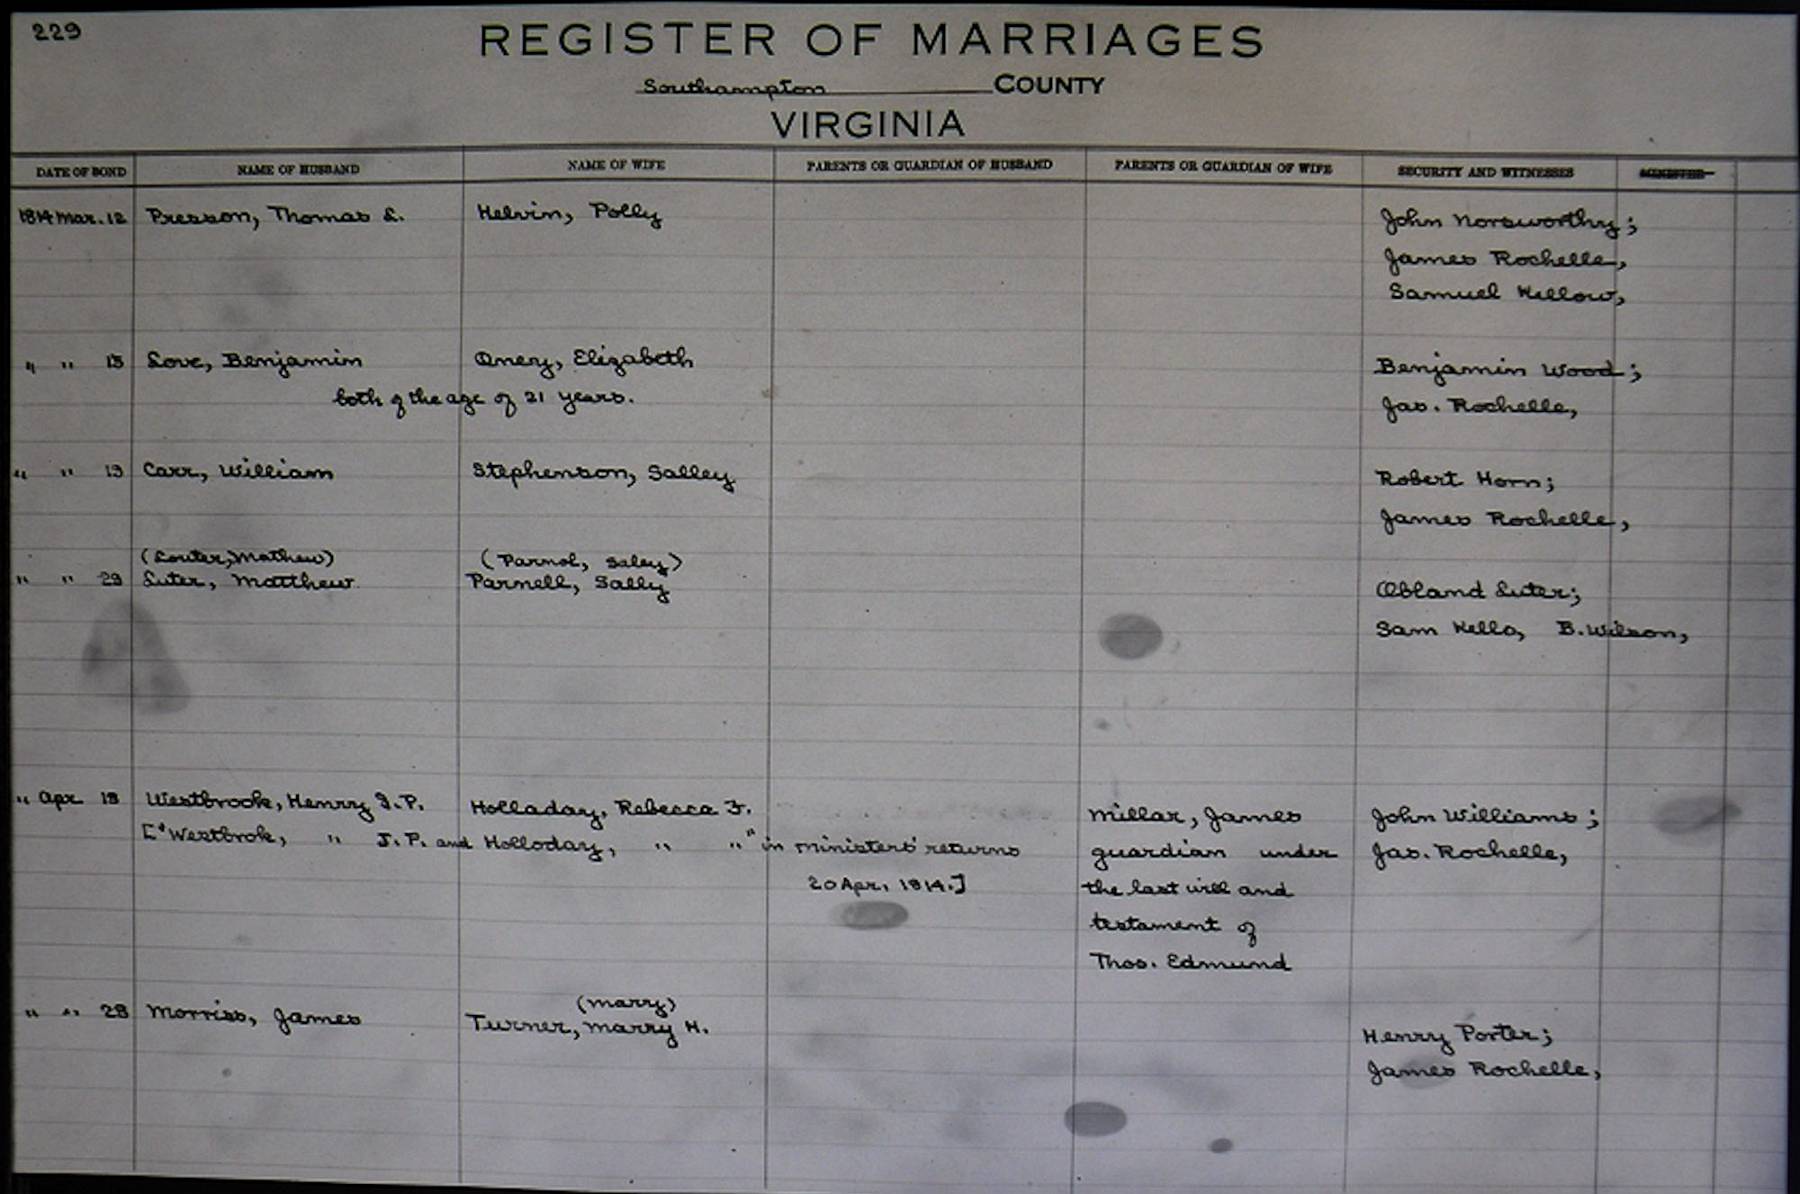 229
REGISTER OF MARRIAGES
Southampton COUNTY
VIRGINIA
DATE OF BOND NAME OF HUSBAND NAME OF WIFE PARENTS OR GUARDIAN OF HUSBAND PARENTS OR GUARDIAN OF WIFE SECURITY AND WITNESSES MINISTER
1814 Mar. 12 Presson, Thomas L. Helvin, Polly John Norsworthy;
James Rochelle,
Samuel Kellow,
" " 15 Love, Benjamin Qnery, Elizabeth Benjamin Wood;
both of the age of 21 years. Jas. Rochelle,
" " 19 Carr, William Stephenson, Salley Robert Horn;
James Rochelle,
(Louter, Mathew) (Parnol, Saley)
" " 29 Luter, Matthew Parnell, Sally Obland Luter;
Sam Kello, B. Wilson,
" Apr 18 Westbrook, Henry J.P. Holladay, Rebecca F. Millar, James John Williams;
["Westbrok, " J.P. and Holloday, " "" in ministers' returns guardian under Jas. Rochelle,
20 Apr. 1814.] the last will and
testament of
Thos. Edmund
" " 28 Morriss, James (Marry)
Turner, Marry H. Henry Porter;
James Rochelle,